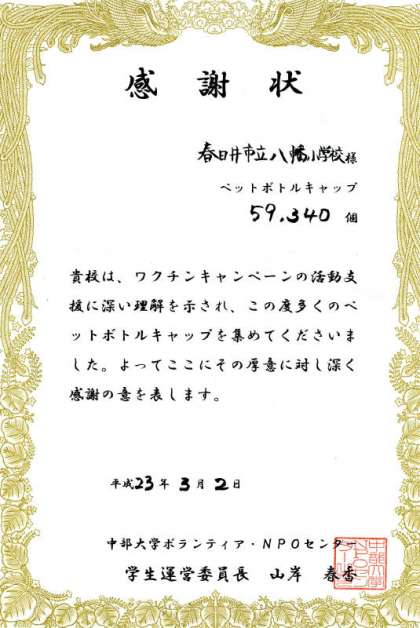 感謝状
春日井市立八幡小学校様
ペットボトルキャップ
59.340 個
貴校は、ワクチンキャンペーンの活動支
援に深い理解を示され、この度多くのペ
ットボトルキャップを集めてくださいま
した。よってここにその厚意に対し深く
感謝の意を表します。
平成23年 3月 2日
中部大学ボランティア・NPOセンター
学生運営委員長 山岸 春香